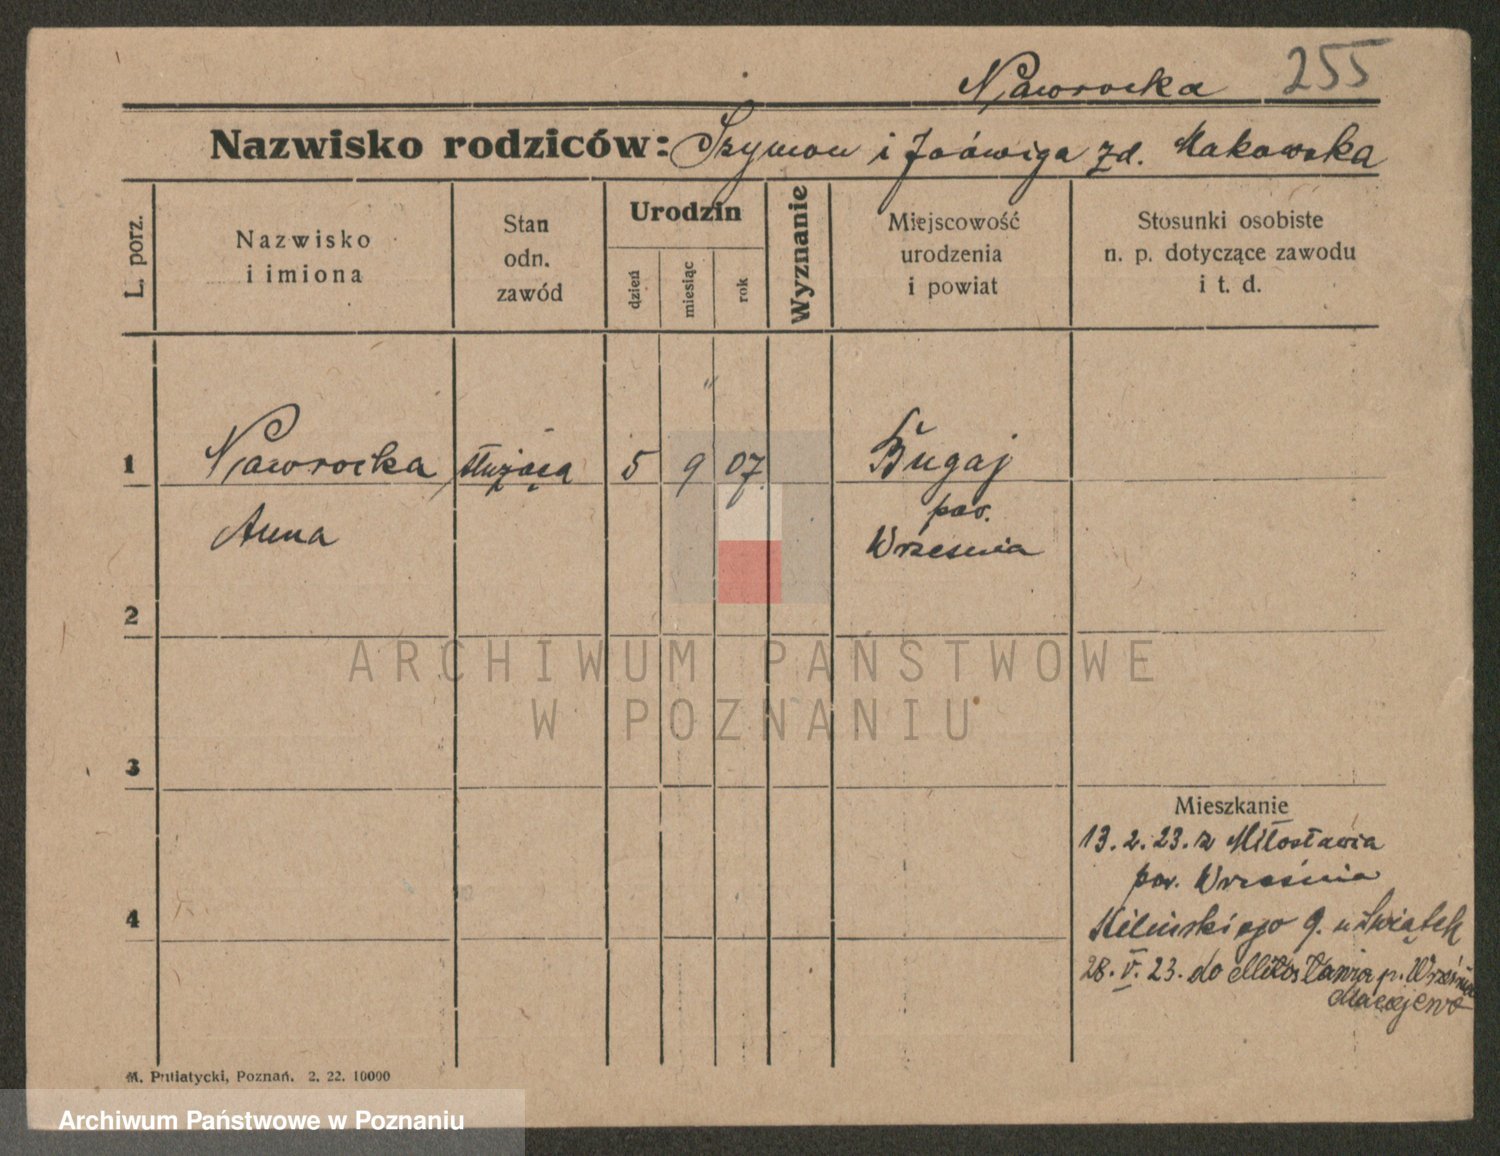 Nawrocka 255
Nazwisko rodziców: Szymon i Jadwiga zd. Makowska
L. porz.
Nazwisko
i imiona
Stan
odn.
zawód
Urodzin
dzień
miesiąc
rok
Wyznanie
Miejscowość
urodzenia
i powiat
Stosunki osobiste
n. p. dotyczące zawodu
i t. d.
1 Nawrocka służąca 5 9 07. Bugaj
Anna
pow.
Wrzesnia
2
3
4
Mieszkanie
13. 2. 23. z Miłosławia
pow. Września
Kilinskiego 9. u Świątek
28. V. 23. do Miłosławia p. Września
ARCHIWUM PAŃSTWOWE
W POZNANIU
M. Putiatycki, Poznań. 2. 22. 10000
Archiwum Państwowe w Poznaniu